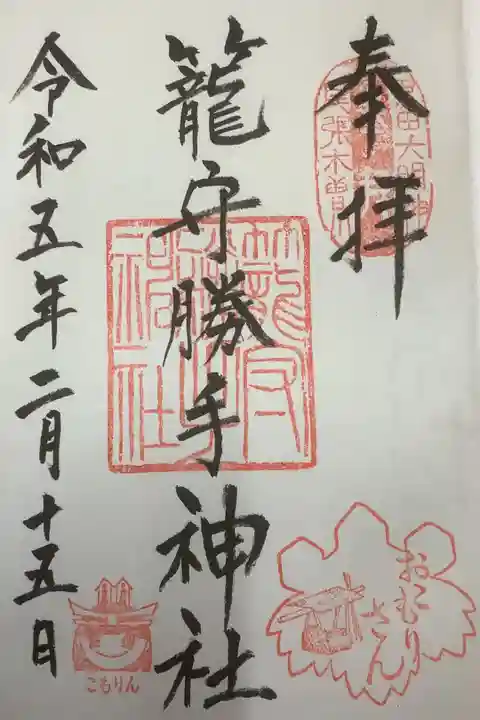 奉拝
籠守勝手神社
令和五年二月十五日
籠守勝手神社
尾張木曽川
おこもりさん
こもりん